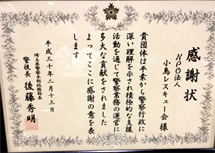 感謝状
NPO法人
小鳥レスキュー会様
貴団体は平素から警察行政に
深い理解を示され積極的な支援
活動を通じて警察業務の運営に
多大な貢献をされました
よってここに感謝の意を表
します
平成三十年二月十三日
警視長 後藤秀明